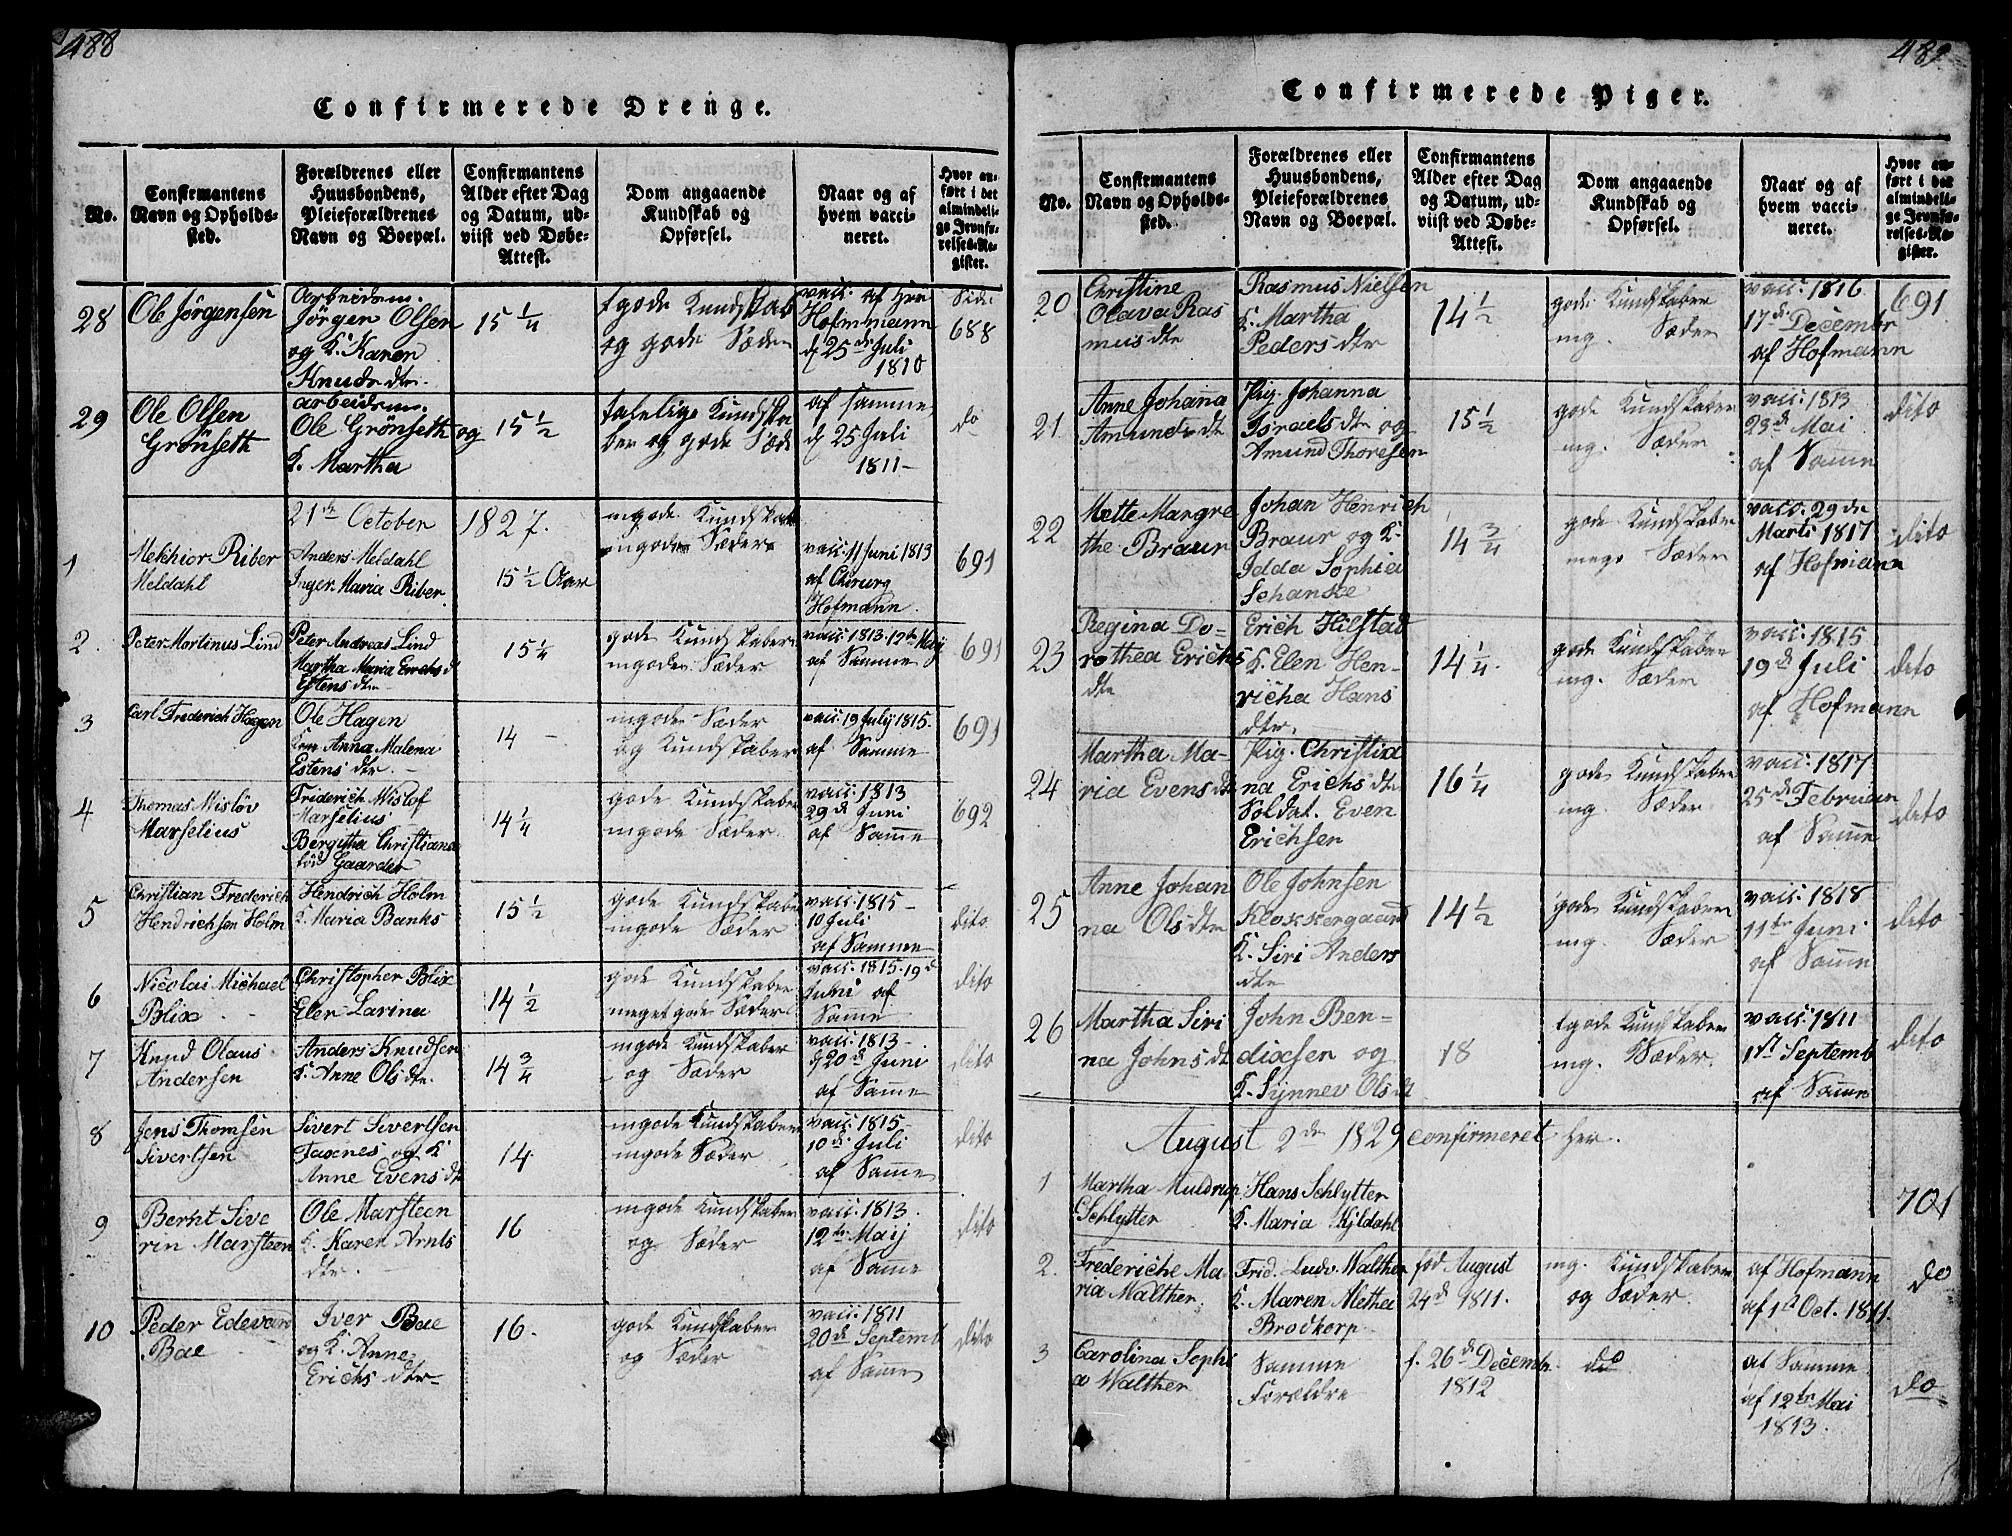 488
Confirmerede Drenge.
No.
Confirmantens
Navn og Opholds-
sted.
Forældrenes eller
Huusbondens,
Pleieforældrenes
Navn og Boepæl.
Confirmantens
Alder efter Dag
og Datum, ud-
viist ved Døbe-
Attest.
Dom angaaende
Kundskab og
Opførsel.
Naar og af
hvem vacci-
neret.
Hvor an-
ført i det
almindeli-
ge Jevnfø-
relses-Re-
gister.
28
Ole Jörgensen
Arbeidsm.
Jörgen Olsen
og K. Karen
Knuds dtr.
15 1/4
tgode Kundskab
og gode Sæder
vacc. af Hrr
Hofmmann
d 25de Juli
1810
Side
688
29
Ole Olsen
Grönseth
arbeidsm.
Ole Grönseth og
K. Martha
15 1/2
talelige Kundska
ber og gode Sæde
af samme
d 25 Juli
1811-
do
21de October 1827.
1
Melchior Riber
Meldahl
Anders Meldahl
Inger Maria Riber
15 1/2 Aar
mgode Kundskab
mgode Sæder
vacc. 11 Juni 1813
af Chirurg
Hofmann.
691
2.
Peter Martinus Lind
Peter Andreas Lind
Martha Maria Erichs d
Estens dtr
15 1/4
gode Kundskaber
mgode Sæder
vacc. 1813. 12te Maij
af Samme
691
3
Carl Frederich Hagen
Ole Hagen
Kon Anna Malena
Estens dtr.
14 -
mgode Sæder
og Kundskaber
vacc. 19 July 1815.
af Samme
691
4
Thomas Misløv
Marselius
Friderich Mislof
Marselius
Bergitha Christiana
född Gaarder
14 1/4
gode Kundskaber
mgode Sæder
vacc. 1813
29de Juni
af Samme
692
5
Christian Frederich
Hendrichsen Holm
Hendrich Holm
K. Maria Banks
15 1/2
gode Kundskaber
mgode Sæder
vacc. 1815 -
10 Juli
af Samme
dito
6
Nicolai Michael
Blix
Christopher Blix
Elen Larina
14 1/2
gode Kundskaber
meget gode Sæder
vacc. 1815. 19d
Juni af
Samme
dito
7
Knud Olaus
Andersen
Anders Knudsen
K. Anne Ols dtr
14 3/4
mgode Kundskaber
og Sæder
vacc. 1813 -
d 20de Juni
af Samme
dito
8
Jens Thomsen
Sivertsen
Sivert Sivertsen
Faxnes og K
Anne Evens dt
14
mgode Kundskaber
mgode Sæder
vacc. 1815 -
10de Juli
af Samme
dito
9
Berht Sive
rin Marsteen
Ole Marsteen
K. Karen Arnts
dtr.
16
mgode Kundskaber
og Sæder
vacc. 1813.
12te Maij
af Samme
dito
10
Peder Edevard
Bae
Iver Bae
og K. Anne
Erichs dtr
16.
gode Kundskaber
og Sæder
vacc. 1811
20de Septemb
af Samme
dito
489
Confirmerede Piger.
No.
Confirmantens
Navn og Opholds-
sted.
Forældrenes eller
Huusbondens,
Pleieforældrenes
Navn og Boepæl.
Confirmantens
Alder efter Dag
og Datum, ud-
viist ved Døbe-
Attest.
Dom angaaende
Kundskab og
Opførsel.
Naar og af
hvem vacci-
neret.
Hvor an-
ført i det
almindeli-
ge Jevnfø-
relses-Re-
gister.
20
Christine
Olava Ras
mus dtr
Rasmus Nielsen
K. Martha
Peders dtr
14 1/2
gode Kundskaber
mg. Sæder
vacc. 1816
17de Decembr
af Hofmann
691
21
Anne Johana
Amunds dtr
Pig. Johanna
Israels dtr og
Amund Thoresen
15 1/2
gode Kundskaber
mg. Sæder
vacc. 1813
23de Mai
af Samme
dito
22
Mette Margre
the Braur
Johan Henrich
Braur og K.
Idda Sophia
Schanke
14 3/4
gode Kundskaber
meg. Sæder
vacc. 29de
Marti 1817
af Hofmann
dito
23
Regina Do-
rothea Erichs
dtr
Erich Hilstad
K. Elen Hen-
richa Hans
dtr.
14 1/4
gode Kundskaber
mg. Sæder
vacc. 1815
19de Juli
af Hofmann
dito
24
Martha Ma-
ria Evens dt
Pig. Christia
na Erichs dtr
Soldat. Even
Erichsen
16 1/4
gode Kundskaber
mg. Sæder
vacc. 1817
25de Februar
af Samme
dito
25
Anne Johan
na Ols dtr
Ole Johnsen
Klokkergaard
K. Siri Anders
dtr
14 1/2
gode Kundskaber
mg. Sæder
vacc. 1818
11te Juni
af Samme
dito
26
Martha Siri
na Johns dt
John Ben-
dixsen og
K. Synnev Ols dt
18
tgode Kundskaber
mg. Sæder.
vacc. 1811
1ste Septemb
af Samme
dito
August 2de 1829 confirmeret her.
1
Martha Muldrup
Schlytter
Hans Schlytter
K. Maria Kjldahl
701
2.
Frederiche Ma-
ria Walther
Frid. Ludv. Walther
K. Maren Methea
Brodkorp
fød August
24de 1811.
mg. Kundskaber
og Sæder
af Hofmann
af 1st Oct. 1811.
do
3
Carolina Sophi
a Walther
Samme
Forældre
f. 26de Decembr
1812
do
af Samme
af 12te Mai
1813.
do